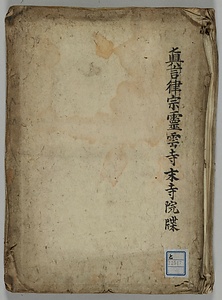 真言律宗靈雲寺末寺院牒